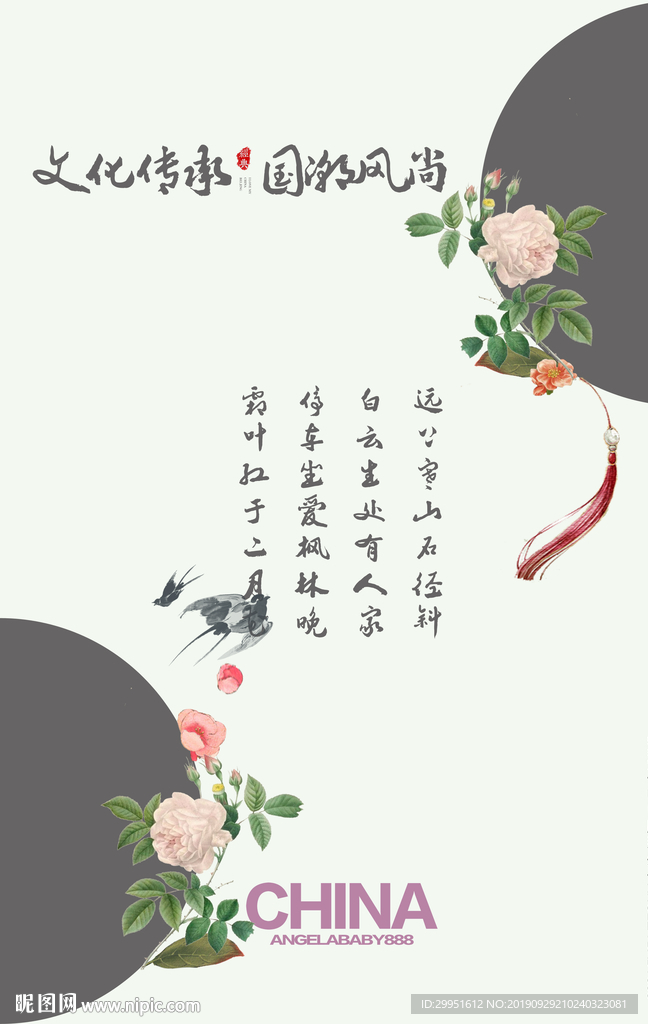 文化传承
經典
国潮风尚
远上寒山石径斜
白云生处有人家
停车坐爱枫林晚
霜叶红于二月花
CHINA
ANGELABABY888
昵图网 www.nipic.com
ID:29951612 NO:20190929210240323081